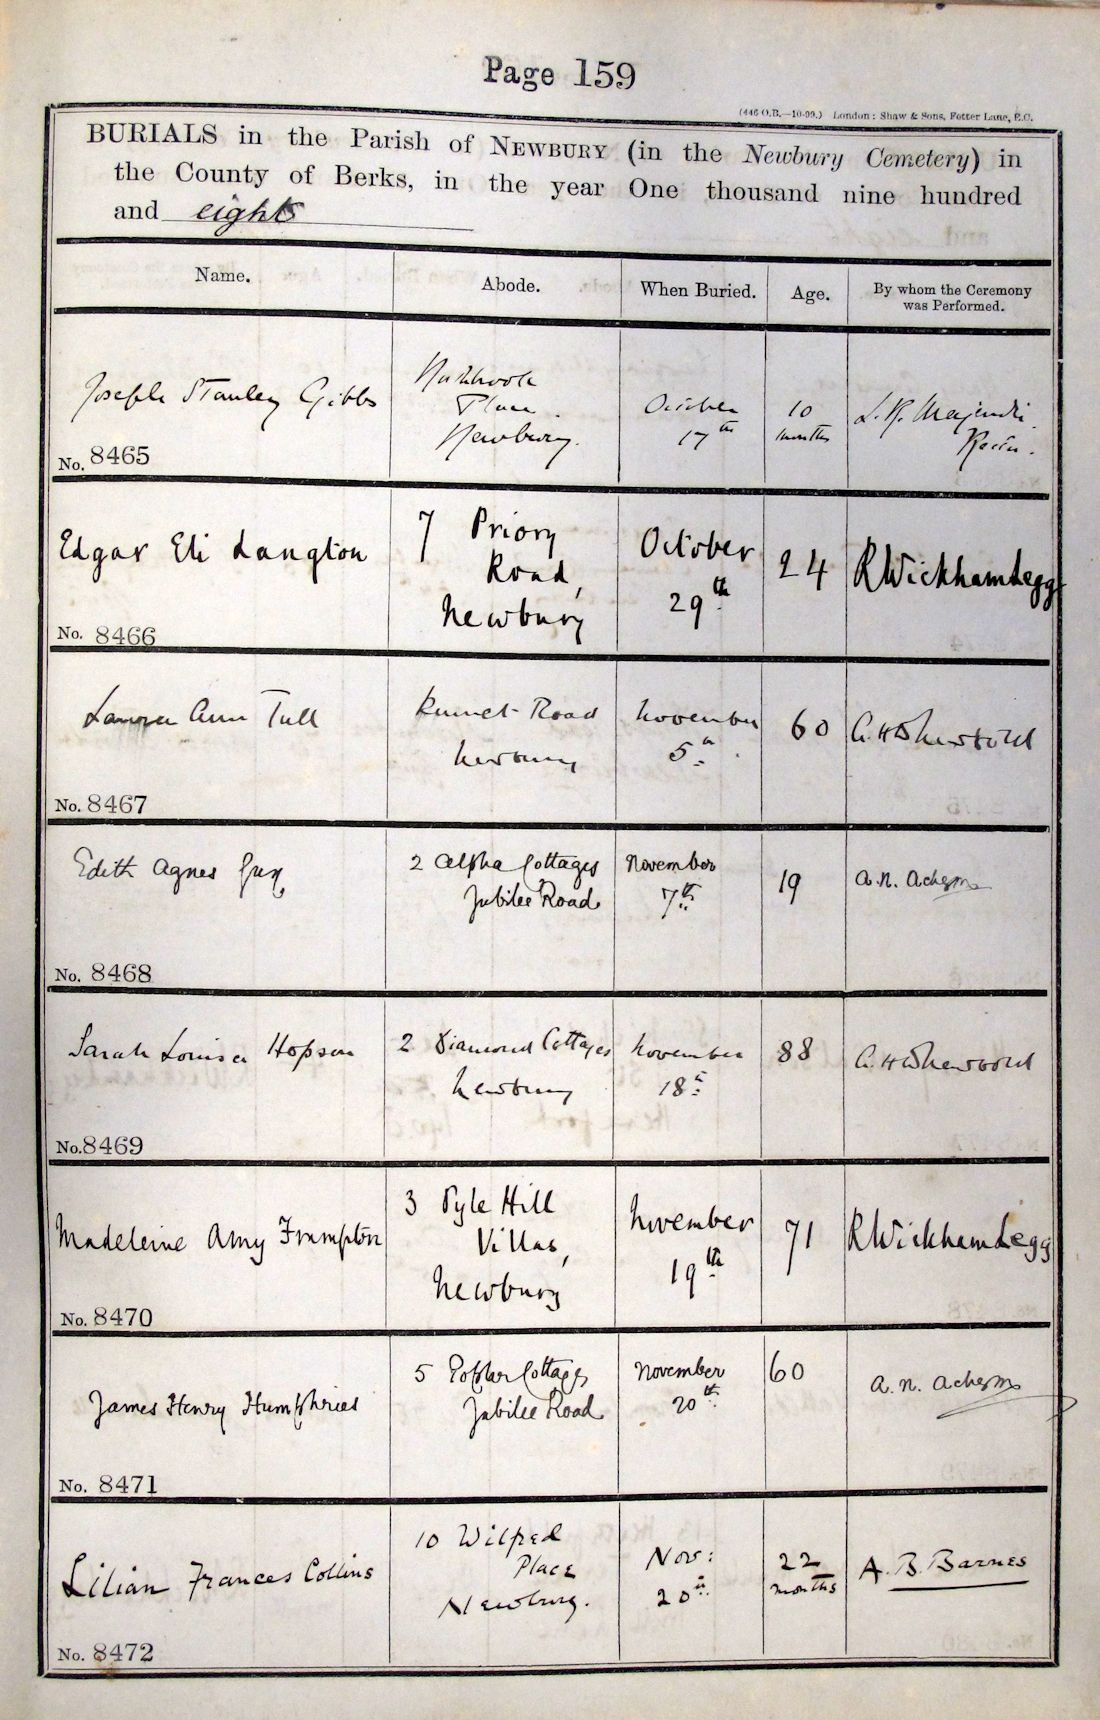 Page 159
(446 O.B.—10-99.) London: Shaw & Sons, Fetter Lane, E.C.
BURIALS in the Parish of NEWBURY (in the Newbury Cemetery) in
the County of Berks, in the year One thousand nine hundred
and eight
Name.
Abode.
When Buried.
Age.
By whom the Ceremony
was Performed.
Joseph Stanley Gibbs
No. 8465
Northbrook
Place.
Newbury.
October
17th
10
months
L. R. Majendie.
Rector.
Edgar Eli Langton
No. 8466
7 Priory
Road,
Newbury
October
29th
24
R Wickham Legg
Laura Ann Tull
No. 8467
Kennet Road
Newbury
November
5th
60
No. 8468
Edith Agnes
2 Alpha Cottages
Jubilee Road
November
7th
19
A. N.
Sarah Louisa Hopson
No. 8469
2 Diamond Cottages
Newbury
November
18th
88
Madeleine Amy Frampton
No. 8470
3 Pyle Hill
Villas,
Newbury
November
19th
71
R Wickham Legg
James Henry Humphries
No. 8471
5 Poplar Cottages
Jubilee Road
November
20th
60
A. N.
Lilian Frances Collins
No. 8472
10 Wilfred
Place
Newbury.
Nov:
20th
22
months
A. B. Barnes